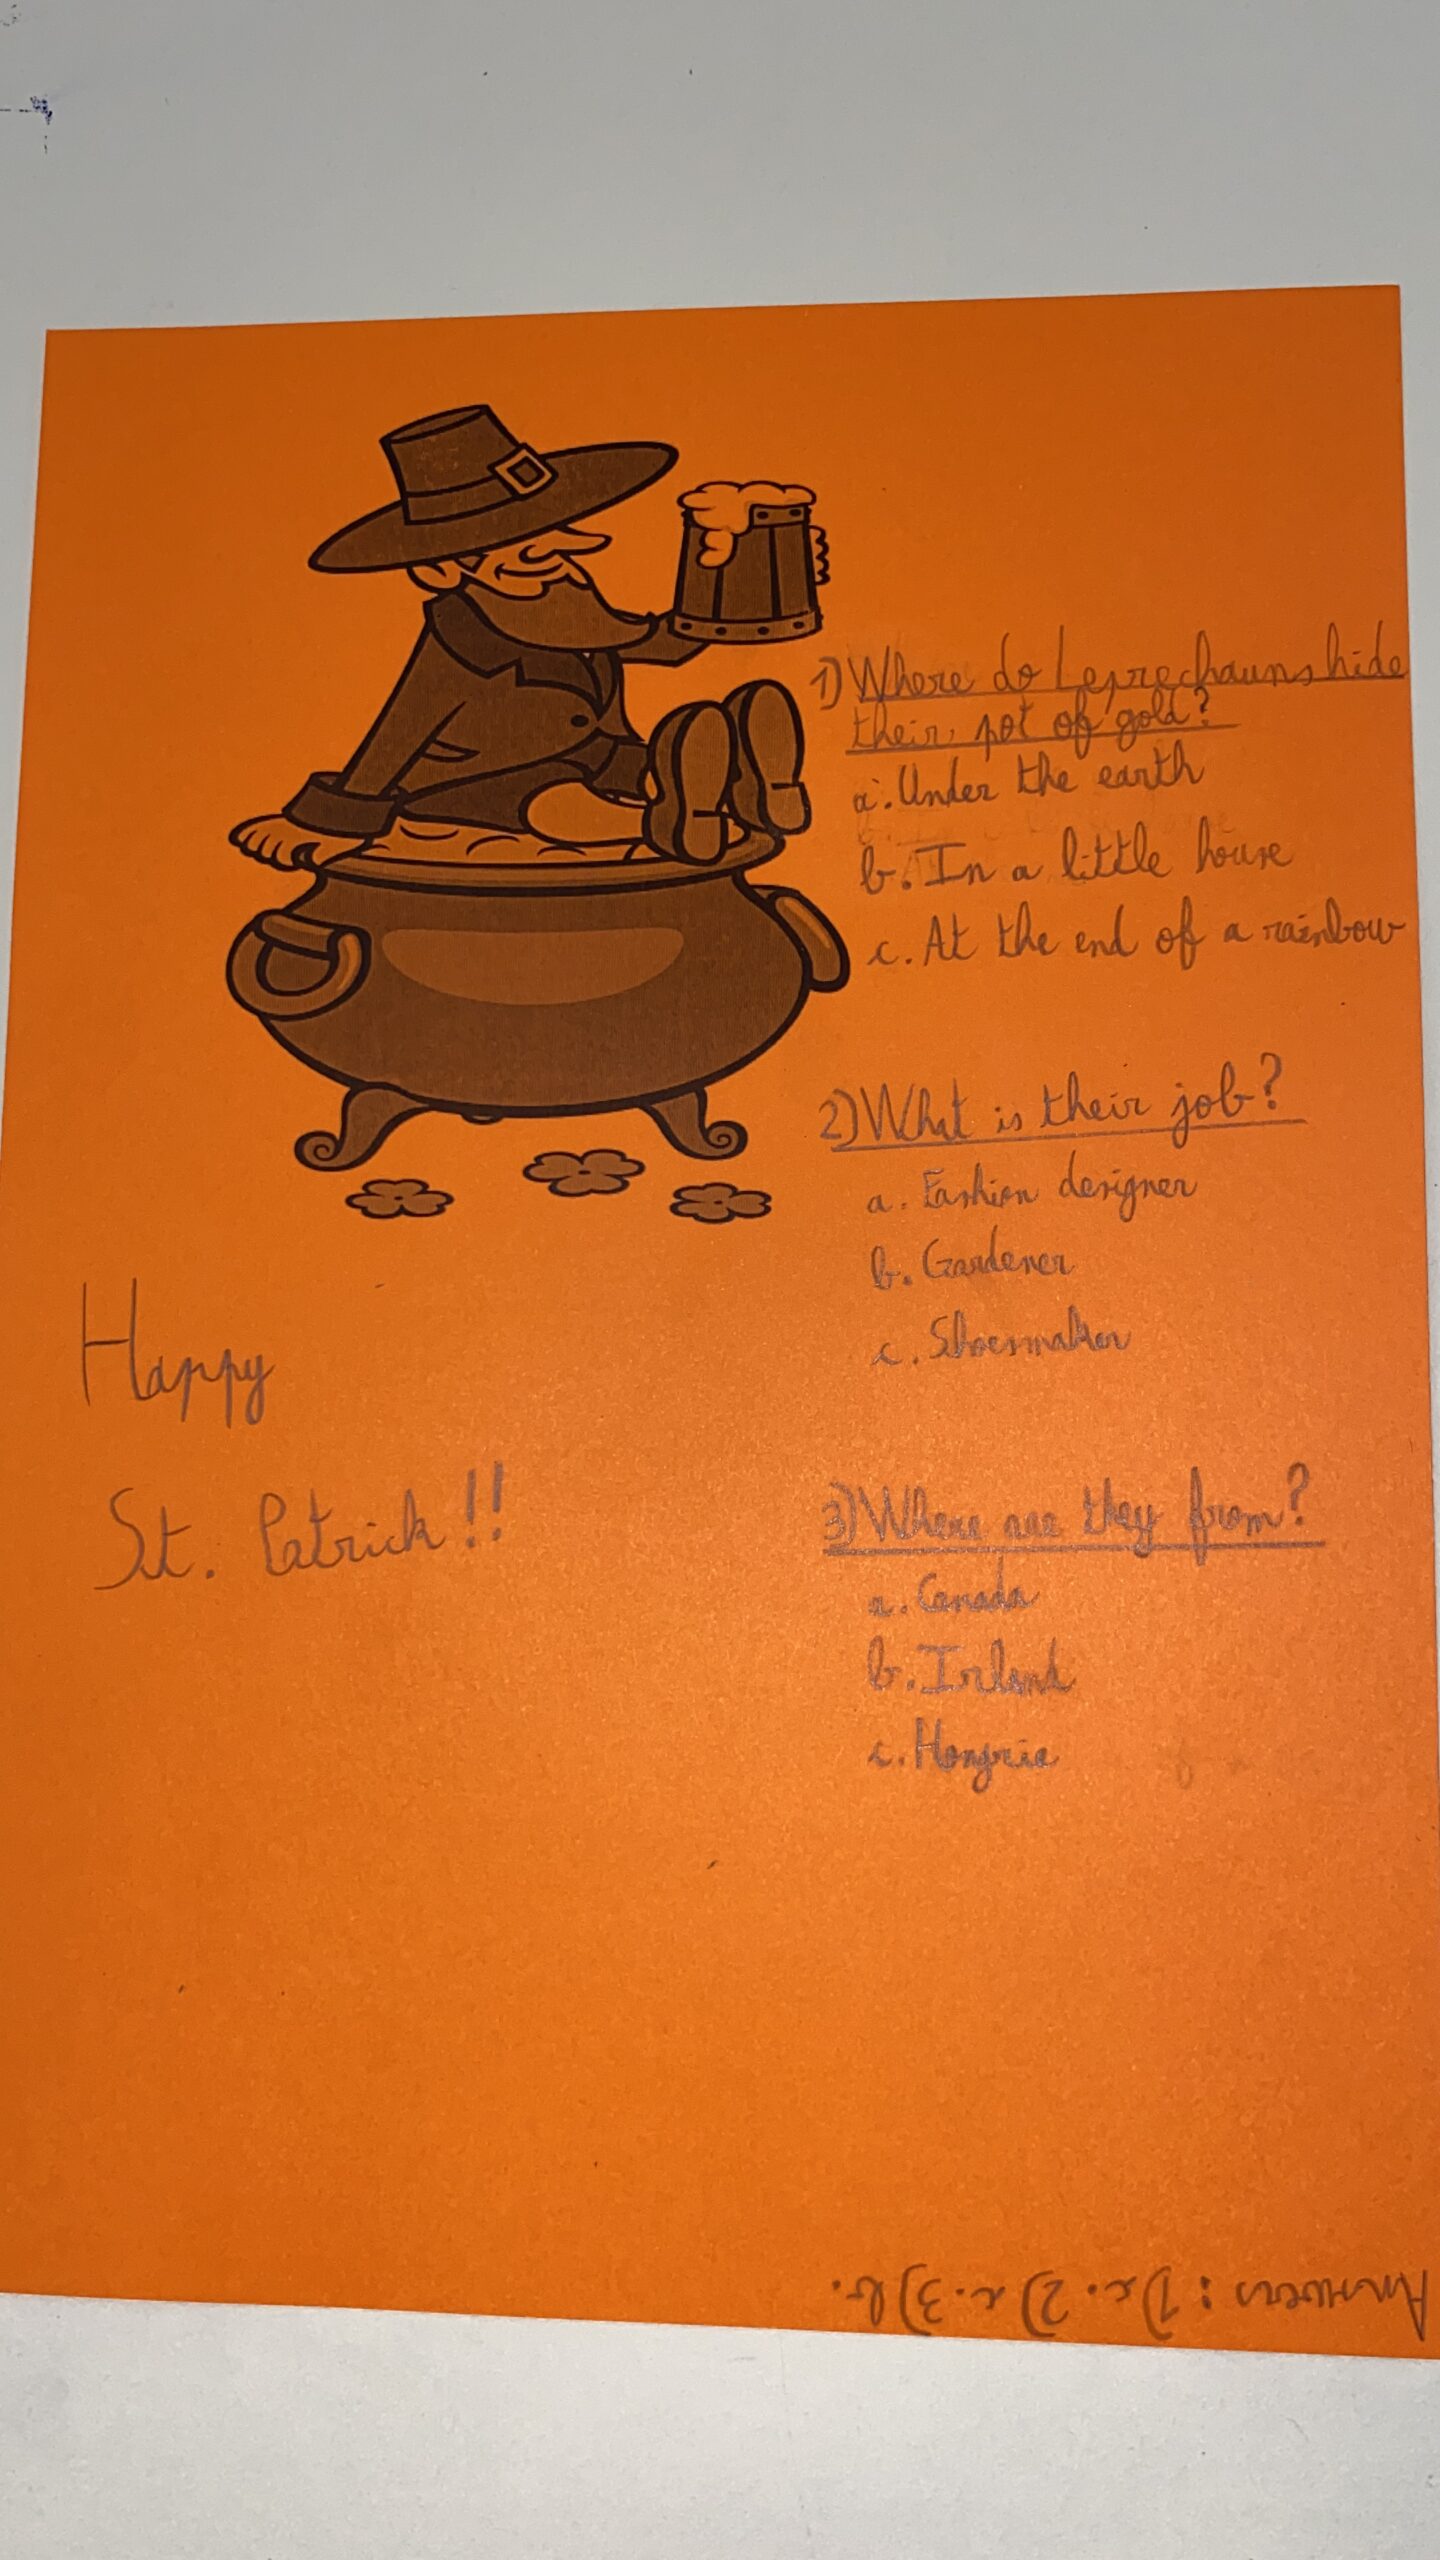 1) Where do Leprechauns hide
their pot of gold?
a. Under the earth
b. In a little house
c. At the end of a rainbow
2) What is their job?
a. Fashion designer
b. Gardener
c. Shoesmaker
3) Where are they from?
a. Canada
b. Irland
c. Hongrie
Happy
St. Patrick!!
Answers: 1) c. 2) c. 3) b.